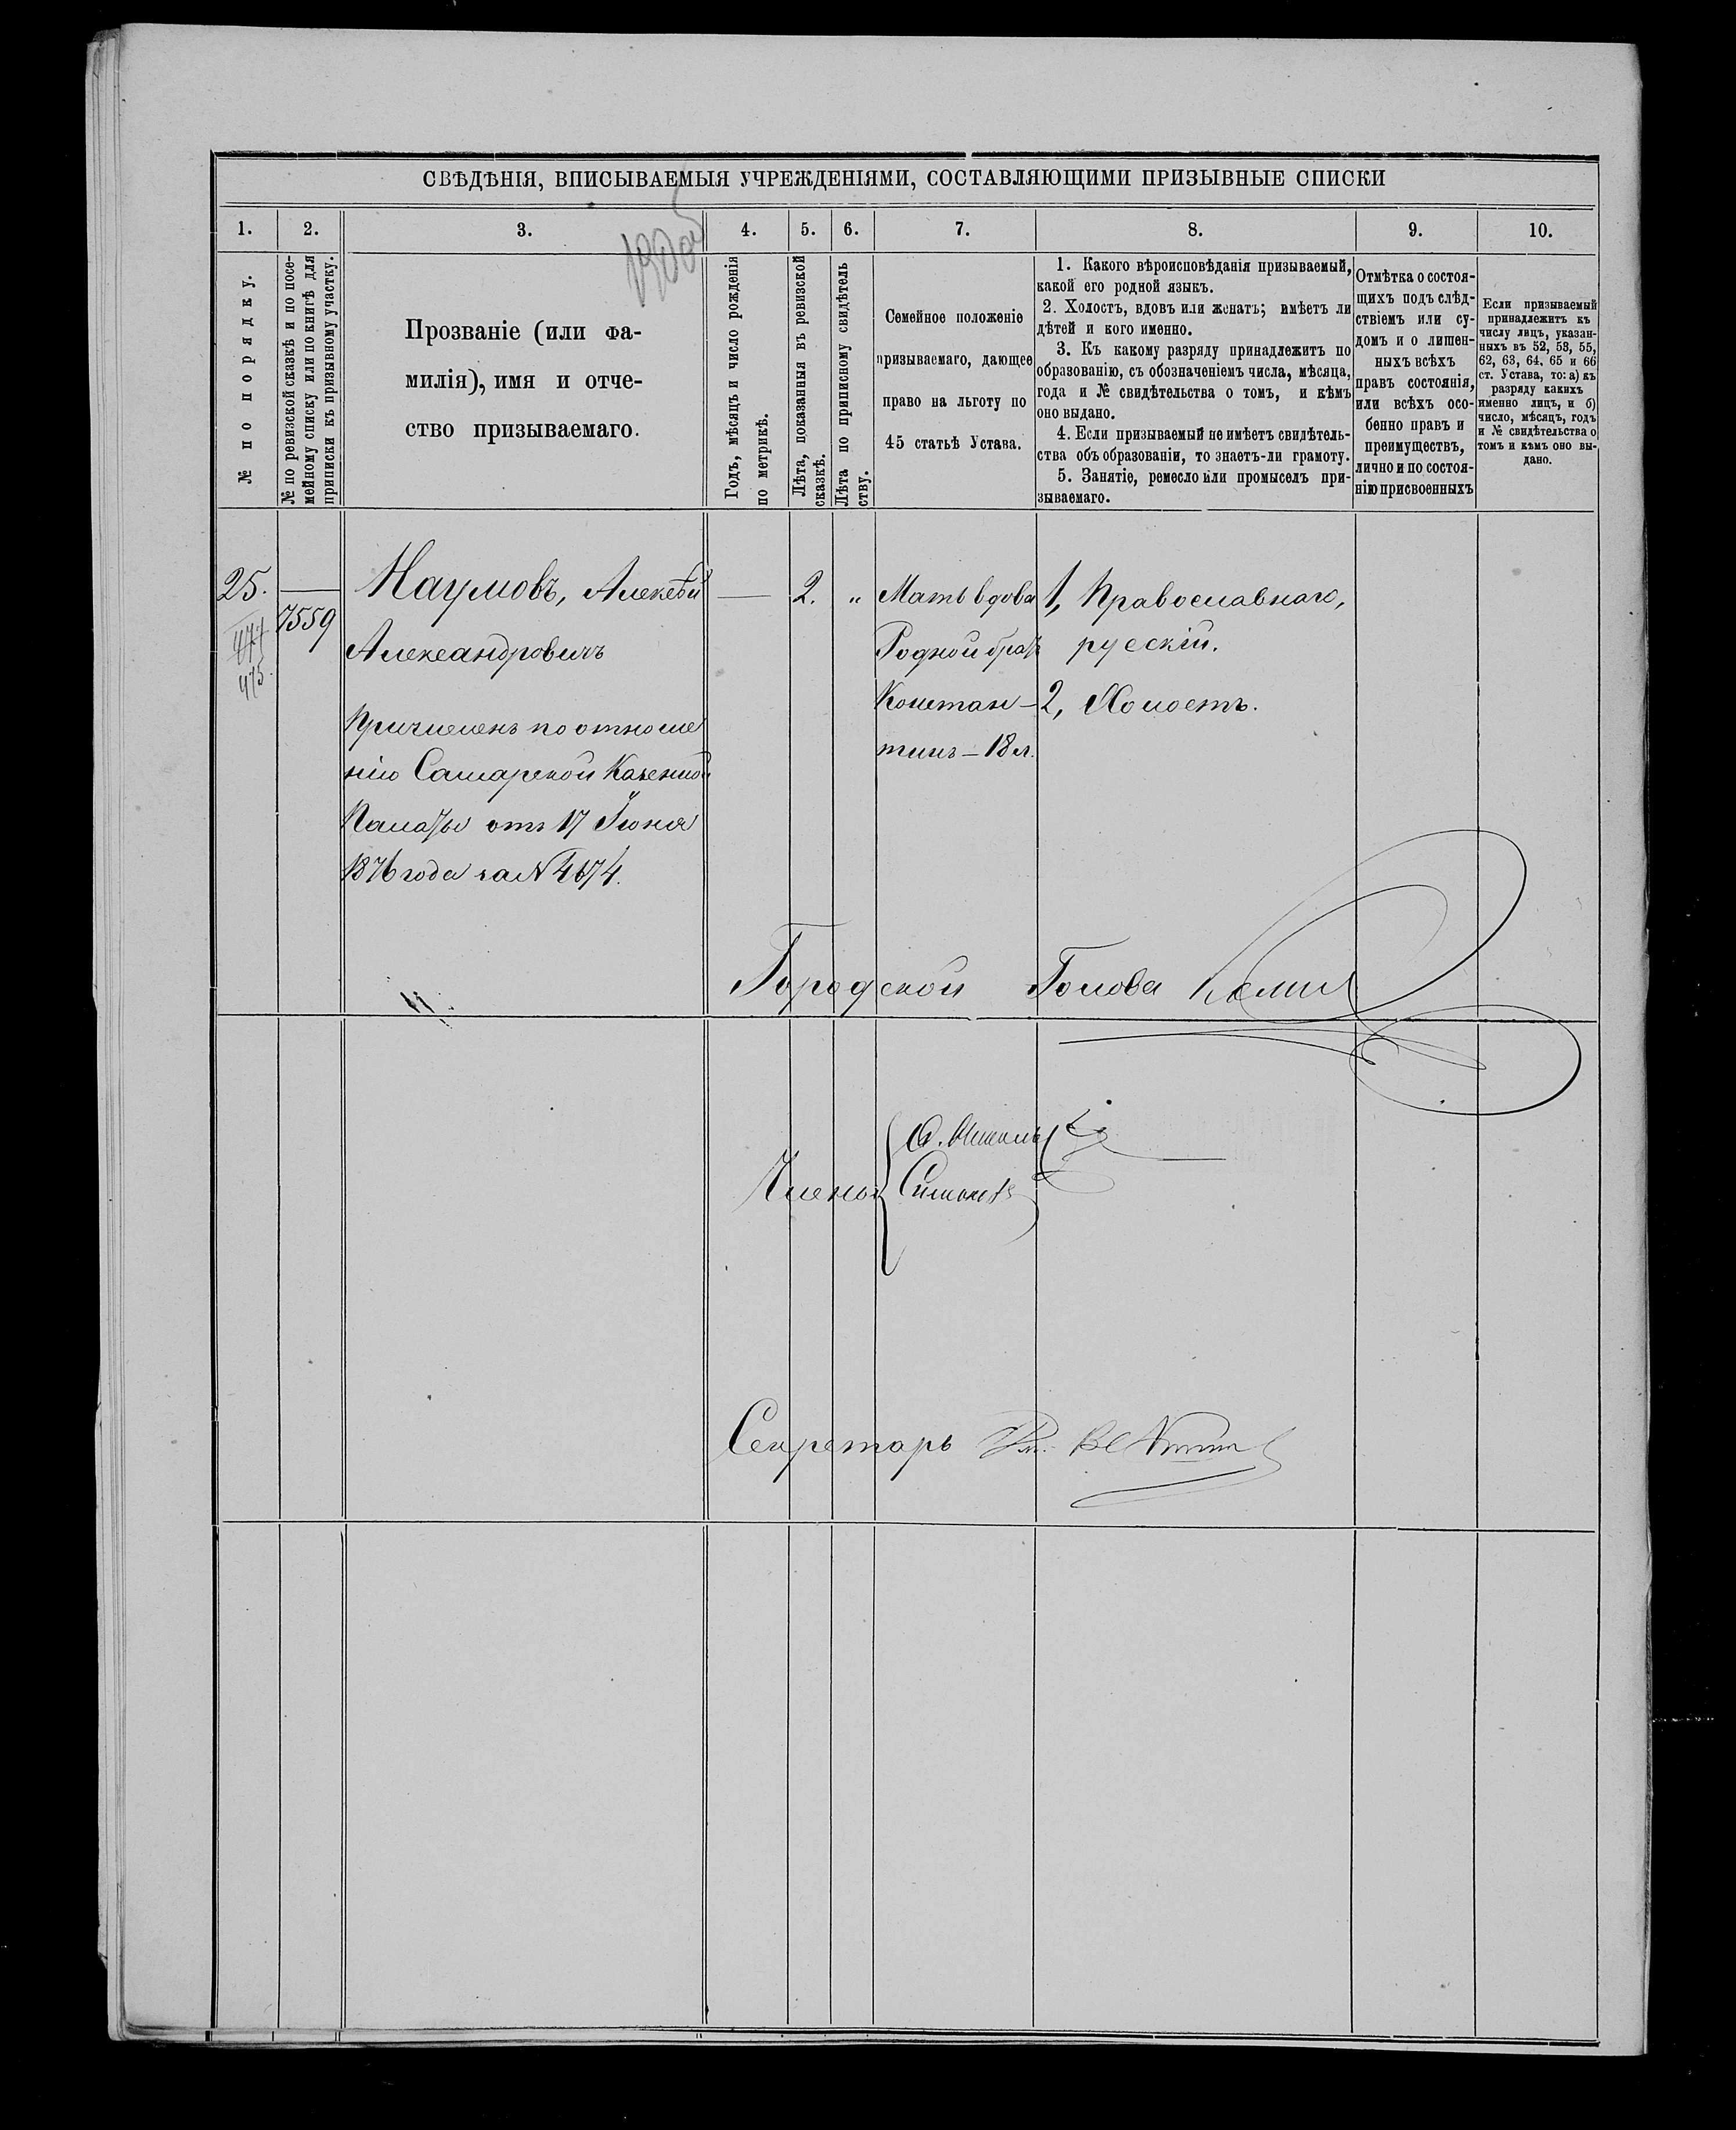 СВѢДѢНІЯ, ВПИСЫВАЕМЫЯ УЧРЕЖДЕНІЯМИ, СОСТАВЛЯЮЩИМИ ПРИЗЫВНЫЕ СПИСКИ
1. 2. 3. 4. 5. 6. 7. 8. 9. 10.
№ по порядку.
№ по ревизской сказкѣ и по посе-
мейному списку или по книгѣ для
приписки къ призывному участку.
Прозваніе (или фа-
милія), имя и отче-
ство призываемаго.
Годъ, мѣсяцъ и число рожденія
по метрикѣ.
Лѣта, показанныя въ ревизской
сказкѣ.
Лѣта по приписному свидѣтель
ству.
Семейное положеніе
призываемаго, дающее
право на льготу по
45 статьѣ Устава.
1. Какого вѣроисповѣданія призываемый,
какой его родной языкъ.
2. Холостъ, вдовъ или женатъ; имѣетъ ли
дѣтей и кого именно.
3. Къ какому разряду принадлежитъ по
образованію, съ обозначеніемъ числа, мѣсяца,
года и № свидѣтельства о томъ, и кѣмъ
оно выдано.
4. Если призываемый не имѣетъ свидѣтель-
ства объ образованіи, то знаетъ-ли грамоту.
5. Занятіе, ремесло или промыселъ при-
зываемаго.
Отмѣтка о состоя-
щихъ подъ слѣд-
ствіемъ или су-
домъ и о лишен-
ныхъ всѣхъ
правъ состоянія,
или всѣхъ осо-
бенно правъ и
преимуществъ,
лично и по состоя-
нію присвоенныхъ
Если призываемый
принадлежитъ къ
числу лицъ, указан-
ныхъ въ 52, 53, 55,
62, 63, 64, 65 и 66
ст. Устава, то: а) къ
разряду какихъ
именно лицъ, и б)
число, мѣсяцъ, годъ
и № свидѣтельства о
томъ и кѣмъ оно вы-
дано.
25.
475
—
7559
Наумовъ, Алексѣй
Александровичъ
Причисленъ по отноше
нію Самарской Казенной
Палаты отъ 17 Іюня
1876 года за № 4674.
—
2.
„
Мать вдова
Родной братъ
Констан-
тинъ – 18 л.
1, Православнаго,
русскій.
2, Холостъ.
Городской Голова
Члены
Секретарь